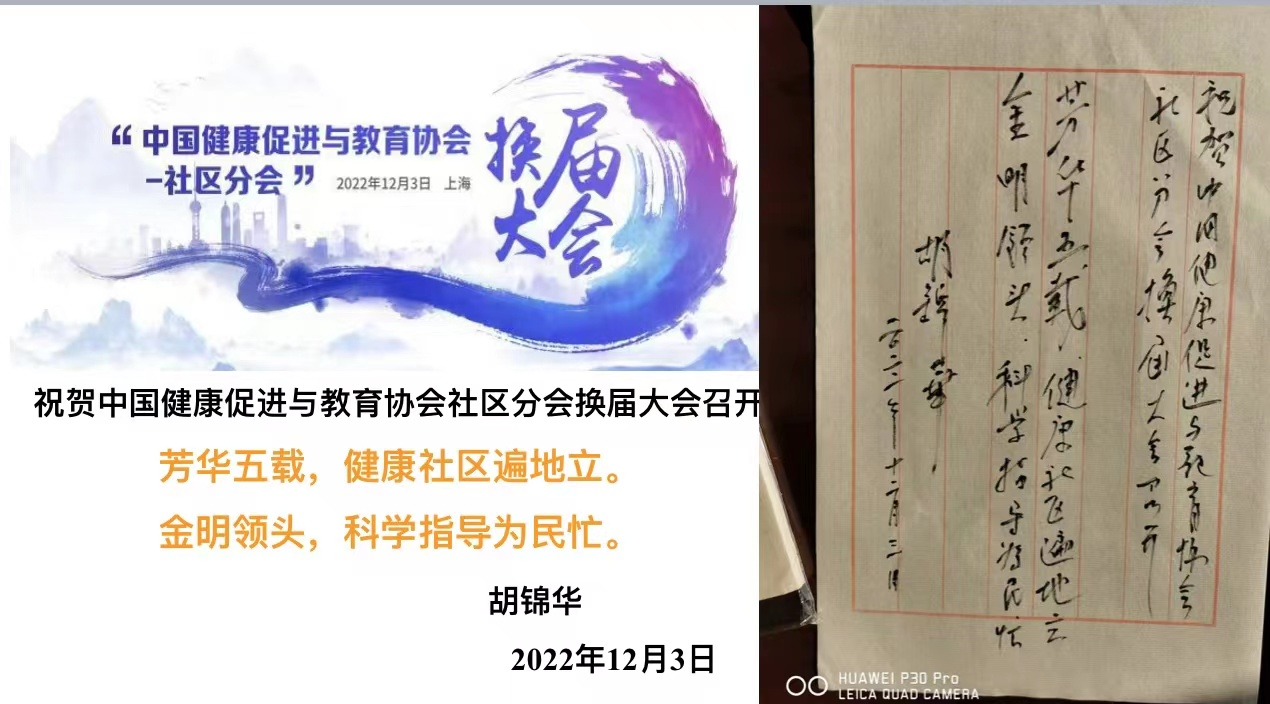 “中国健康促进与教育协会
-社区分会”
2022年12月3日 上海
换届
大会
祝贺中国健康促进与教育协会社区分会换届大会召开
芳华五载，健康社区遍地立。
金明领头，科学指导为民忙。
胡锦华
2022年12月3日
祝贺中国健康促进与教育协会
社区分会换届大会召开
芳华五载，健康社区遍地立
金明领头，科学指导为民忙
胡锦华
二〇二二年十二月三日
HUAWEI P30 Pro
LEICA QUAD CAMERA